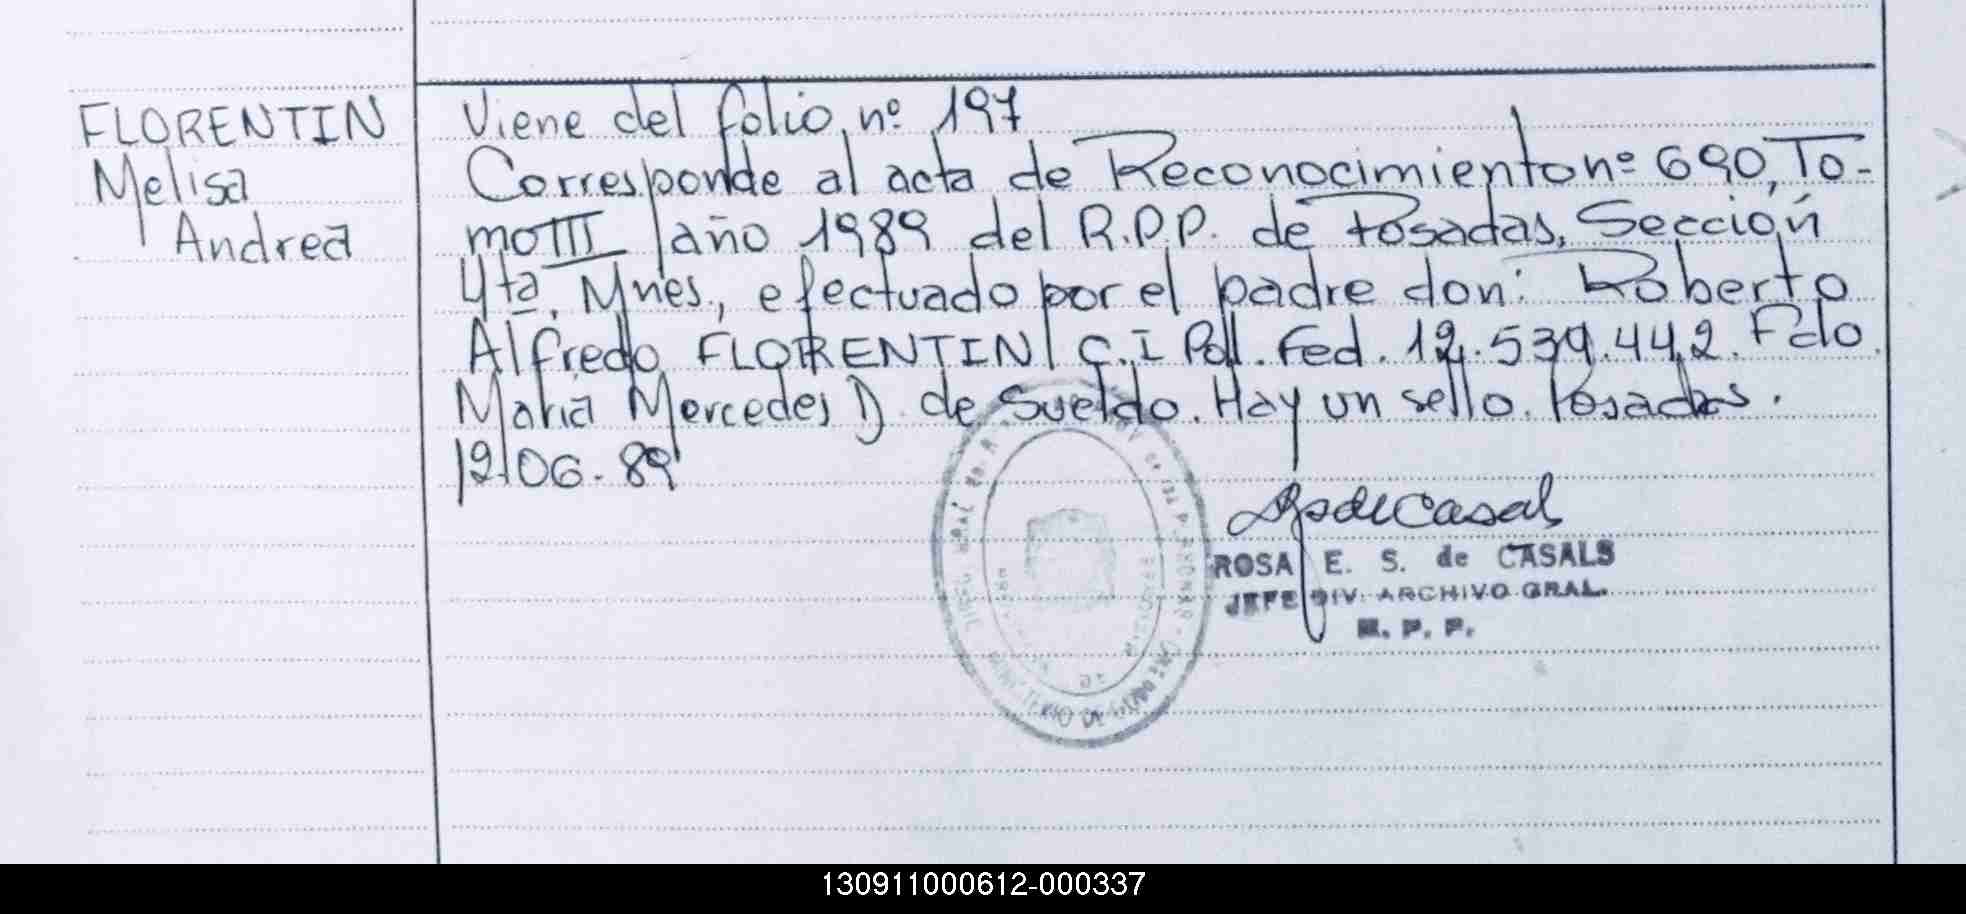 FLORENTIN
Melisa
Andrea
Viene del folio nº 197
Corresponde al acta de Reconocimiento nº 690, To-
mo III año 1989 del R.P.P. de Posadas, Sección
4ta. Mnes., efectuado por el padre don: Roberto
Alfredo FLORENTIN C.I Pol. Fed. 12.539.442. Fdo.
María Mercedes D. de Sueldo. Hay un sello. Posadas.
12.06.89
ROSA E. S. de CASALS
JEFE DIV. ARCHIVO GRAL.
R. P. P.
130911000612-000337